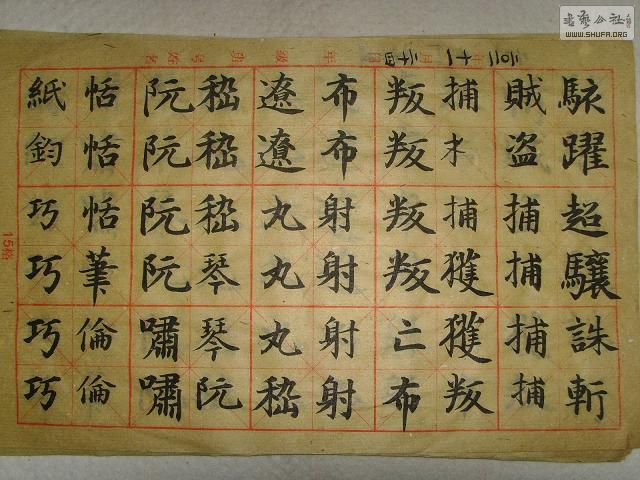 書藝公社
WWW.SHUFA.ORG
駭躍超驤誅斬
賊盜捕捕捕捕
捕扌捕獲獲叛
叛叛叛叛亡布
布布射射射射
遼遼丸丸丸嵇
嵇嵇嵇琴琴阮
阮阮阮阮嘯嘯
恬恬恬筆倫倫
紙鈞巧巧巧巧
15格